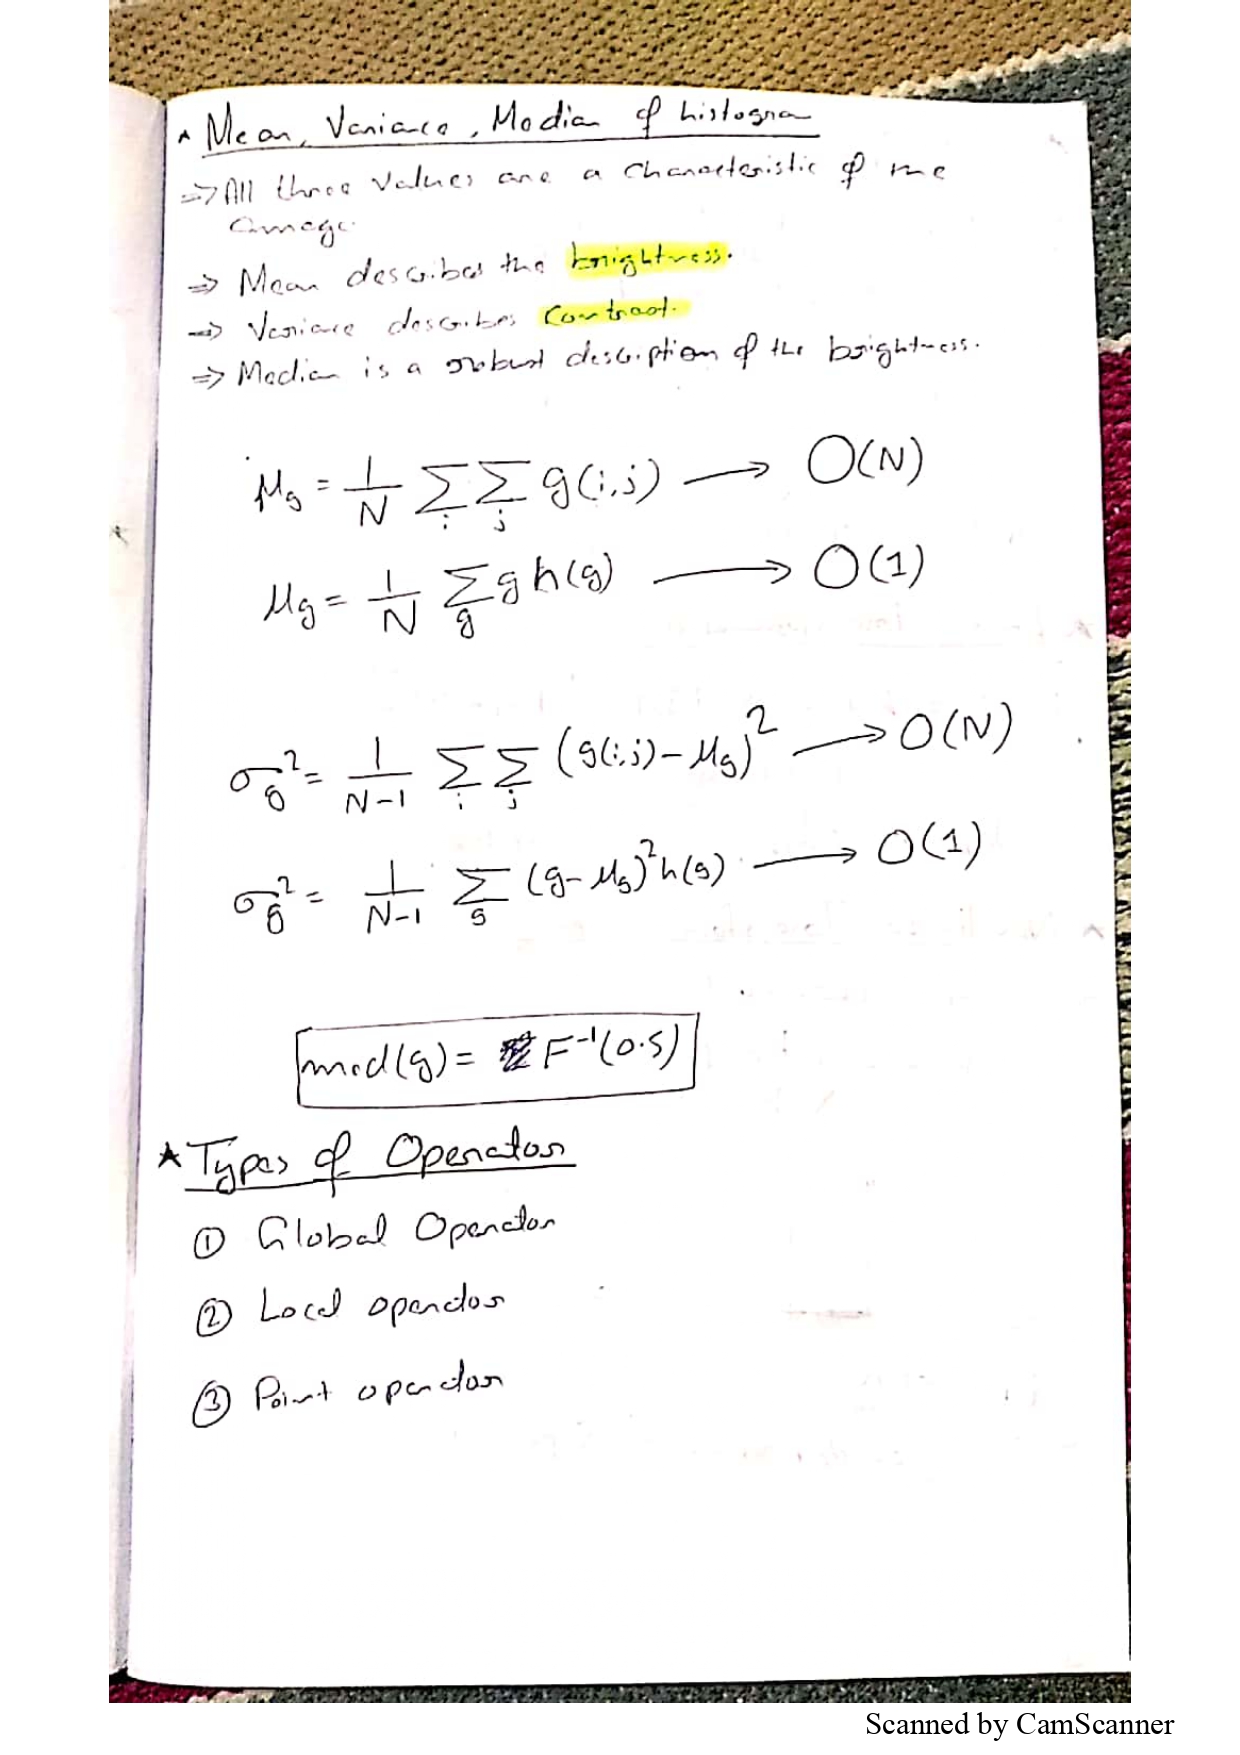 * Mean, Variance, Median of histogram
=> All three values are a characteristic of the
image.
=> Mean describes the brightness.
=> Variance describes Contrast.
=> Median is a robust description of the brightness.
μg = 1/N Σi Σj g(i,j) → O(N)
μg = 1/N Σg g h(g) → O(1)
σg² = 1/(N-1) Σi Σj (g(i,j) - μg)² → O(N)
σg² = 1/(N-1) Σg (g - μg)² h(g) → O(1)
med(g) = F⁻¹(0.5)
* Types of Operator
① Global Operator
② Local operator
③ Point operator
Scanned by CamScanner